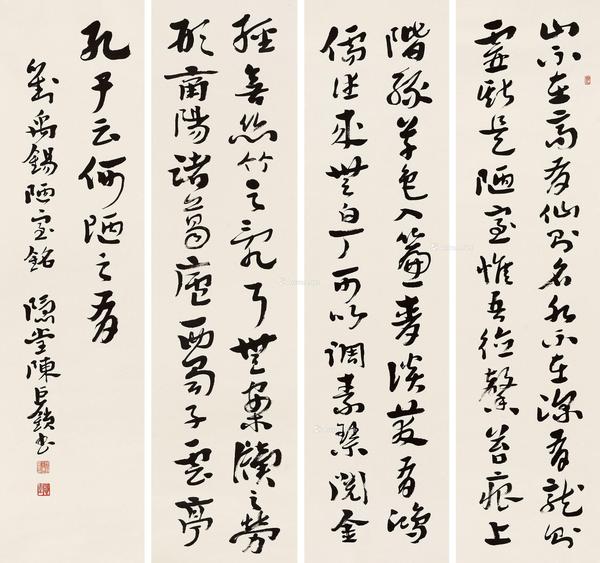 山不在高有仙則名水不在深有龍則
靈斯是陋室惟吾德馨苔痕上
階緑草色入簾青談笑有鴻
儒往來無白丁可以調素琴閱金
經無絲竹之亂耳無案牘之勞
形南陽諸葛廬西蜀子雲亭
孔子云何陋之有
劉禹錫陋室銘 隱堂陳巨鎖書